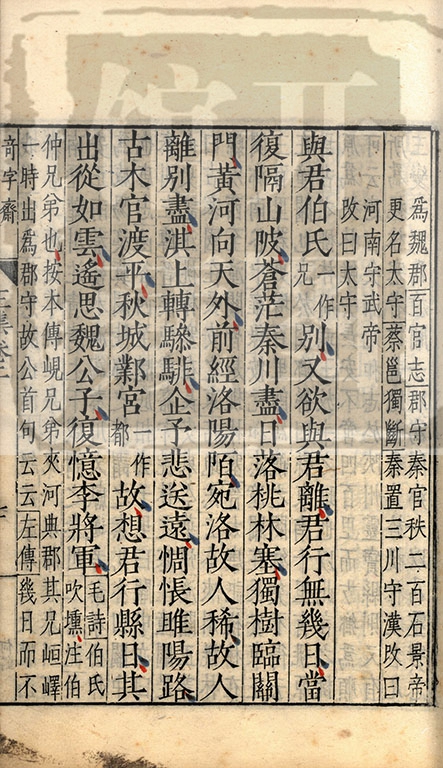 為魏郡百官志郡守秦官秩二百石景帝
更名太守蔡邕獨斷秦置三川守漢改曰
河南守武帝
改曰太守
與君伯氏一作兄別又欲與君離君行無幾日當
復隔山陂蒼茫秦川盡日落桃林塞獨樹臨關
門黃河向天外前經洛陽陌宛洛故人稀故人
離別盡淇上轉驂騑企予悲送遠惆悵睢陽路
古木官渡平秋城鄴宮一作都故想君行縣日其
出從如雲遙思魏公子復憶李將軍毛詩伯氏吹壎注伯
仲兄弟也按本傳峴兄弟夾河典郡其兄峘嶧
一時出為郡守故公首句云云左傳幾日而不
奇字齋